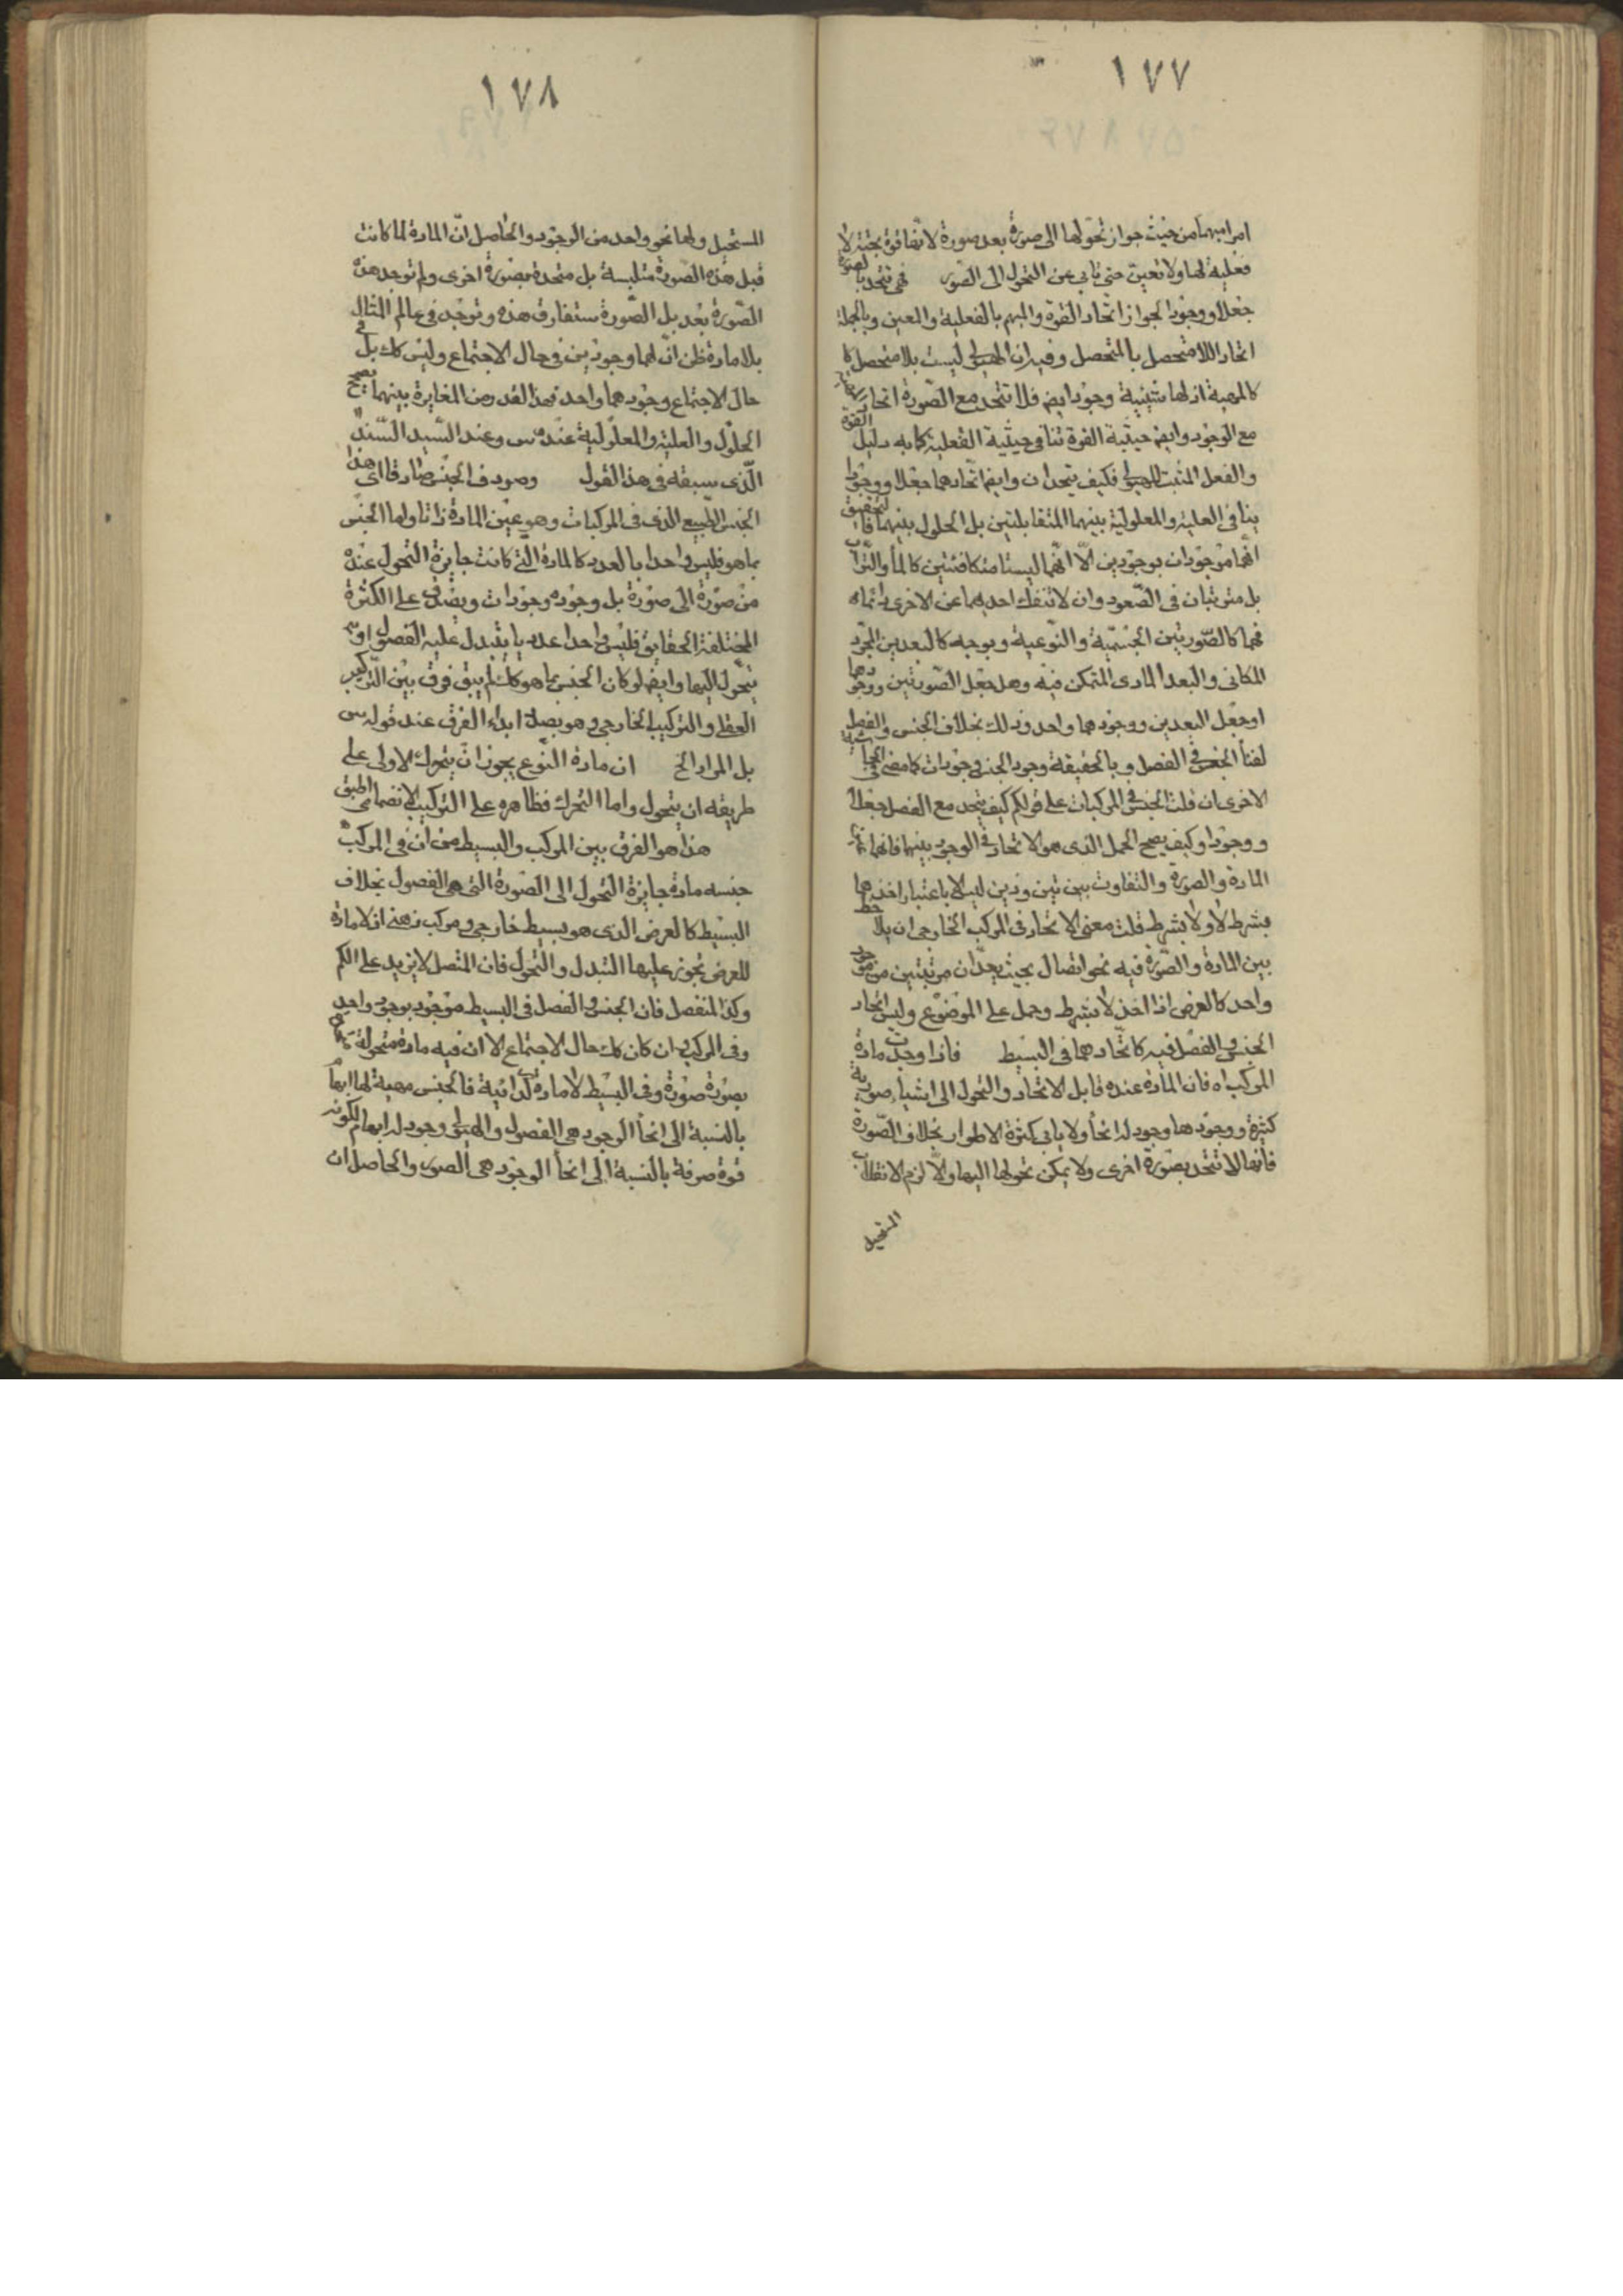 ١٧٧
امرا مبهما من حيث جواز تحولها الى صورة بعد صورة لانها قوة بحتة لا
فعلية لها ولا تعين حتى تابى عن التحول الى الصور فهى تتحد بالصورة
جعلا ووجودا لجواز اتحاد القوة والمبهم بالفعلية والمعين وبالجملة
اتحاد اللامتحصل بالمتحصل وفيه ان الهيولى ليست بلا متحصل كا
كالمهية اذ لها شيئية وجود ايضا فلا تتحد مع الصورة اتحاد
مع الوجود وايضا حيثية القوة تنافى حيثية الفعلية كما به دليل القوة
والفعل المثبت للهيولى فكيف يتحدان وايضا اتحادهما جعلا ووجودا
ينافى العلية والمعلولية بينهما المتقابلتين بل الحلول بينهما فالتحقيق
انهما موجودان بوجودين الا انهما ليستا متكافئتين كالماء والتراب
بل مترتبان فى الصعود وان لا تنفك احديهما عن الاخرى
فهما كالصورتين الجسمية والنوعية وبوجه كالبعدين المجرد
المكانى والبعد المادى المتمكن فيه وهل جعل الصورتين ووجودهما
او جعل البعدين ووجودهما واحد وذلك بخلاف الجنس والفصل
لفناء الجنس فى الفصل وبالحقيقة وجود الجنس وجودات كما مضى فى
الاخرى ان قلت الجنس فى المركبات على قولكم كيف يتحد مع الفصل جعلا
ووجودا وكيف يصح الحمل الذى هو الاتحاد فى الوجود بينهما فانهما
المادة والصورة والتفاوت بين تين وذين ليس الا باعتبار اخذهما
بشرط لا ولا بشرط قلت معنى الاتحاد فى المركب الخارجى ان
بين المادة والصورة فيه نحو اتصال بحيث يعدان مرتبتين من موجود
واحد كالعرض اذا اخذ لا بشرط وحمل على الموضوع وليس اتحاد
الجنس والفصل فيه كاتحادهما فى البسيط فاذا وجدت مادة
المركب اه فان المادة عنده قابل الاتحاد والتحول الى اشياء صورية
كثيرة ووجودها وجود له انحاء ولا يابى كثرة الاطوار بخلاف الصورة
فانها لا تتحد بصورة اخرى ولا يمكن تحولها اليها والا لزم الانقلاب
المستحيل
١٧٨
المستحيل ولهما نحو واحد من الوجود والحاصل ان المادة لما كانت
قبل هذه الصورة متلبسة بل متحدة بصورة اخرى ولم توجد هذه
الصورة بعد بل الصورة ستفارق هذه وتوجد فى عالم المثال
بلا مادة ظن ان لهما وجودين فى حال الاجتماع وليس كك بل فى
حال الاجتماع وجودهما واحد فهذا القدر من المغايرة بينهما يصحح
الحلول والعلية والمعلولية عنده س وعند السيد السند
الذى سبقه فى هذا القول وصودف الجنس صادقا اى هذا
الجنس الطبيعى الذى فى المركبات وهو عين المادة ذاتا واما الجنس
بما هو فليس واحدا بالعدد كالمادة التى كانت جايزة التحول عنده
من صورة الى صورة بل وجوده وجودات ويصدق على الكثرة
المختلفة الحقايق فليس واحدا عدديا يتبدل عليه الفصول او
يتحول اليها وايضا لو كان الجنس بما هو كك لم يبق فرق بين التركيب
العقلى والتركيب الخارجى وهو بصدد ابداء الفرق عند قوله س
بل المراد الخ ان مادة النوع يجوز ان يتحرك الاولى على
طريقه ان يتحول واما التحرك فظاهره على التركيب الانضمامى
هذا هو الفرق بين المركب والبسيط من ان فى المركب
جنسه مادة جايزة التحول الى الصورة التى هى الفصول بخلاف
البسيط كالعرض الذى هو بسيط خارجى ومركب ذهنى اذ لا مادة
للعرض يجوز عليها التبدل والتحول فان المتصل لا يزيد على الكم
وكذا المنفصل فان الجنس والفصل فى البسيط موجود بوجود واحد
وفى المركب وان كان كك حال الاجتماع الا ان فيه مادة متحولة
بصورة صورة وفى البسيط لا مادة كذائية فالجنس مهية لها ابهام
بالنسبة الى انحاء الوجود هى الفصول والهيولى وجود له ابهام لكونه
قوة صرفة بالنسبة الى انحاء الوجود هى الصور والحاصل ان